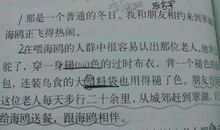 1那是一个普通的冬日。我和朋友相约来到翠湖
海鸥正飞得热闹。
2在喂海鸥的人群中很容易认出那位老人。他
驼了，穿一身褪色的过时布衣，背一个褪色
包，连装鸟食的大塑料袋也用得褪了色。朋友告
这位老人每天步行二十余里，从城郊赶到翠湖，
给海鸥送餐，跟海鸥相伴。